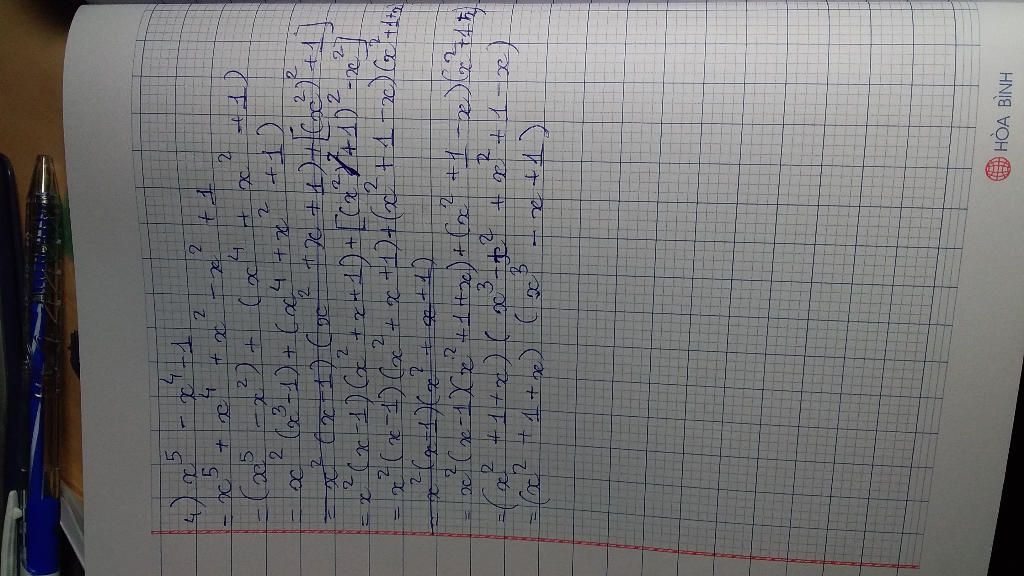 4) x⁵ - x⁴ - 1
= x⁵ + x⁴ + x² - x² + 1
= (x⁵ - x²) + (x⁴ + x² + 1)
= x² (x³ - 1) + (x⁴ + x² + 1)
= x² (x - 1) (x² + x + 1) + [(x²)² + 1]
= x² (x - 1) (x² + x + 1) + [(x² + 1)² - x²]
= x² (x - 1) (x² + x + 1) + (x² + 1 - x) (x² + 1 + x)
= x² (x - 1) (x² + x + 1)
= x² (x - 1) (x² + 1 + x) + (x² + 1 - x) (x² + 1 + x)
= (x² + 1 + x) ( x³ - x² + x² + 1 - x)
= (x² + 1 + x) (x³ - x + 1)
HÒA BÌNH